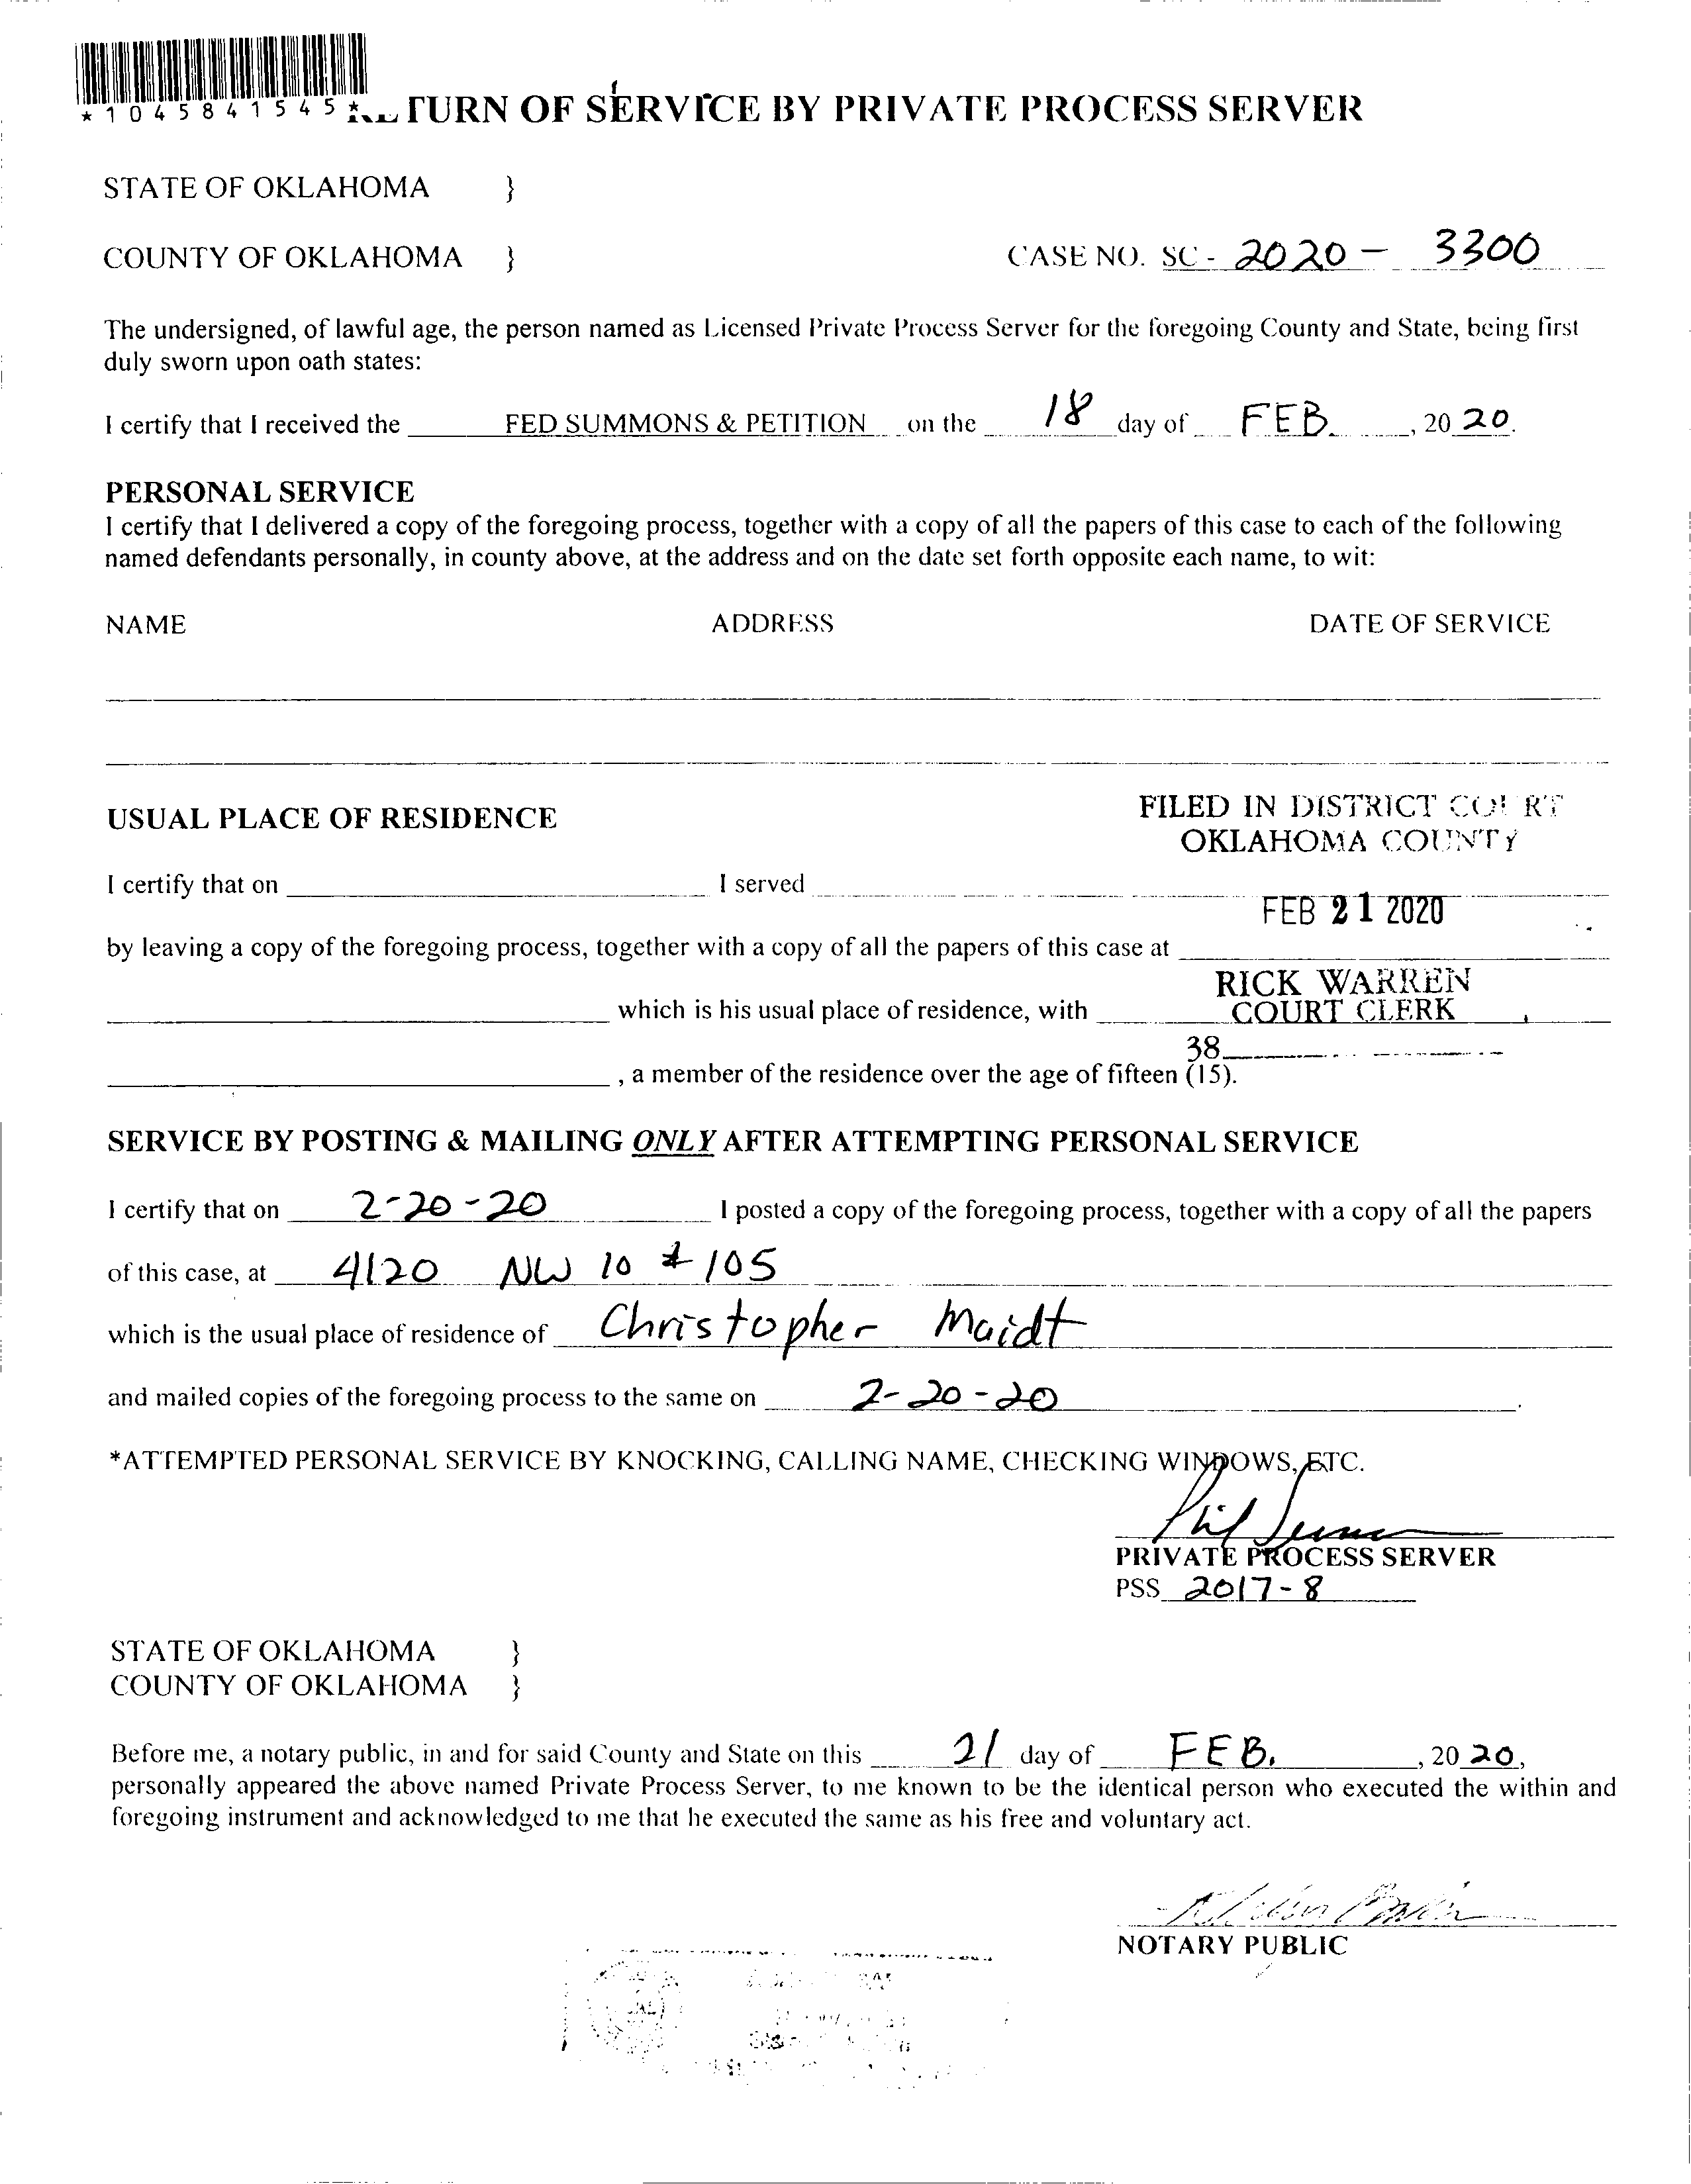 *1045841545*
TURN OF SERVICE BY PRIVATE PROCESS SERVER
STATE OF OKLAHOMA }
COUNTY OF OKLAHOMA } CASE NO. SC - 2020 - 3300
The undersigned, of lawful age, the person named as Licensed Private Process Server for the foregoing County and State, being first
duly sworn upon oath states:
I certify that I received the FED SUMMONS & PETITION on the 18 day of FEB. , 20 20.
PERSONAL SERVICE
I certify that I delivered a copy of the foregoing process, together with a copy of all the papers of this case to each of the following
named defendants personally, in county above, at the address and on the date set forth opposite each name, to wit:
NAME ADDRESS DATE OF SERVICE
USUAL PLACE OF RESIDENCE
FILED IN DISTRICT COURT
OKLAHOMA COUNTY
I certify that on I served
FEB 21 2020
by leaving a copy of the foregoing process, together with a copy of all the papers of this case at
RICK WARREN
which is his usual place of residence, with COURT CLERK ,
38
, a member of the residence over the age of fifteen (15).
SERVICE BY POSTING & MAILING ONLY AFTER ATTEMPTING PERSONAL SERVICE
I certify that on 2-20-20 I posted a copy of the foregoing process, together with a copy of all the papers
of this case, at 4120 NW 10 # 105
which is the usual place of residence of Christopher Maidt
and mailed copies of the foregoing process to the same on 2-20-20 .
*ATTEMPTED PERSONAL SERVICE BY KNOCKING, CALLING NAME, CHECKING WINDOWS, ETC.
PRIVATE PROCESS SERVER
PSS 2017-8
STATE OF OKLAHOMA }
COUNTY OF OKLAHOMA }
Before me, a notary public, in and for said County and State on this 21 day of FEB. , 20 20,
personally appeared the above named Private Process Server, to me known to be the identical person who executed the within and
foregoing instrument and acknowledged to me that he executed the same as his free and voluntary act.
NOTARY PUBLIC